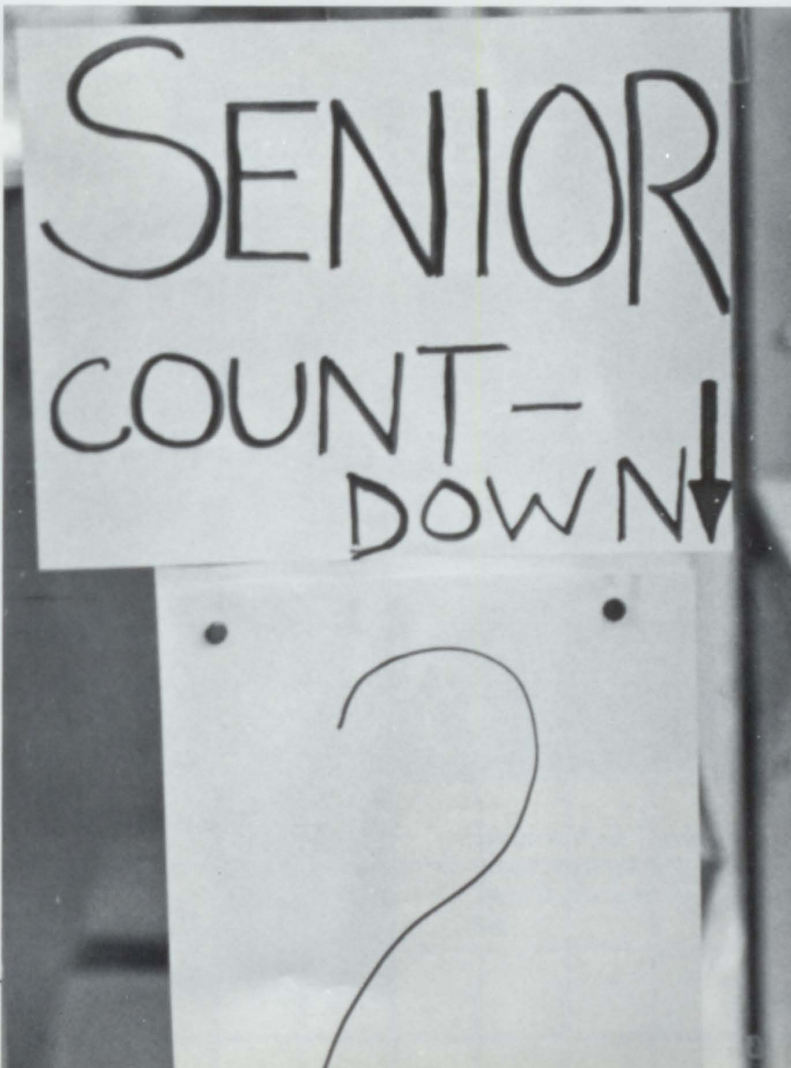 SENIOR
COUNT-
DOWN↓
2